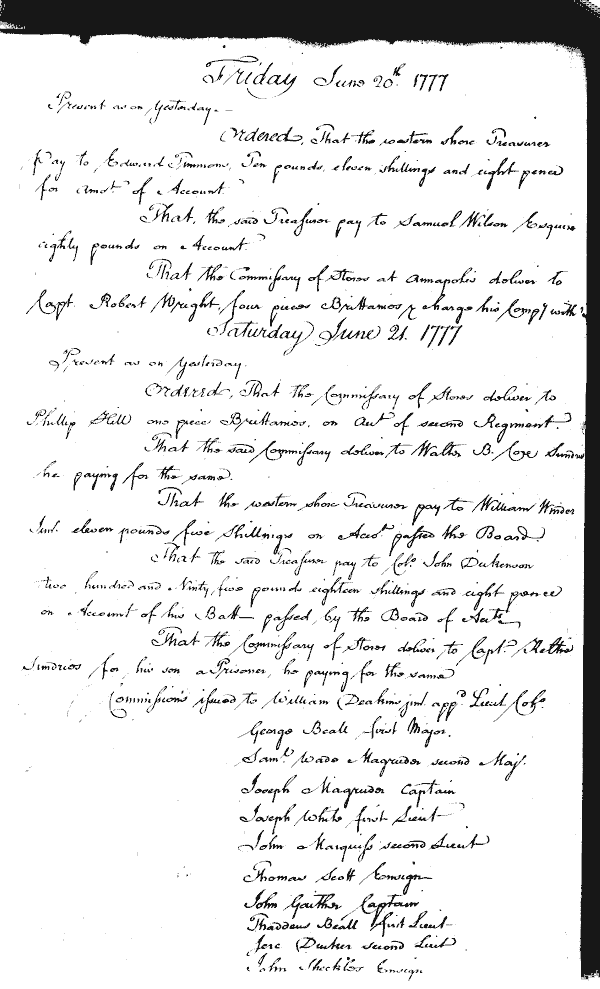 Friday June 20th. 1777
Present as on Yesterday.
Ordered, That the western shore Treasurer
pay to Edward Timmons, Ten pounds, eleven shillings and eight pence
for Amot. of Account
That, the said Treasurer pay to Samuel Wilson Esquire
eighty pounds on Account.
That the Commissary of Stores at Annapolis deliver to
Capt. Robert Wright, four pieces Brittanios & charge his Compy with
Saturday June 21. 1777
Present as on Yesterday.
Ordered, That the Commissary of Stores deliver to
Phillip Hill one piece Brittanios, on Act. of second Regiment.
That the said Commissary deliver to Walter B. Cox Sundries
he paying for the same.
That the western shore Treasurer pay to William Winder
Junr. eleven pounds five Shillings on Accot. passed the Board.
That the said Treasurer pay to Colo. John Dickenson
two hundred and Ninty five pounds eighteen shillings and eight pence
on Account of his Batt passed by the Board of Accts
That the Commissary of Stores deliver to Capt.
Sundries for his son a Prisoner, he paying for the same
Commissions issued to William Deakins junr. appd. Lieut Colo.
George Beall first Major.
Saml. Wade Magruder second Maj.
Joseph Magruder Captain
Joseph White first Lieut
John Marquiss second Lieut
Thomas Scott Ensign
John Gaither Captain
Thaddeus Beall first Lieut
Jere Ducker second Lieut
John Sheckles Ensign